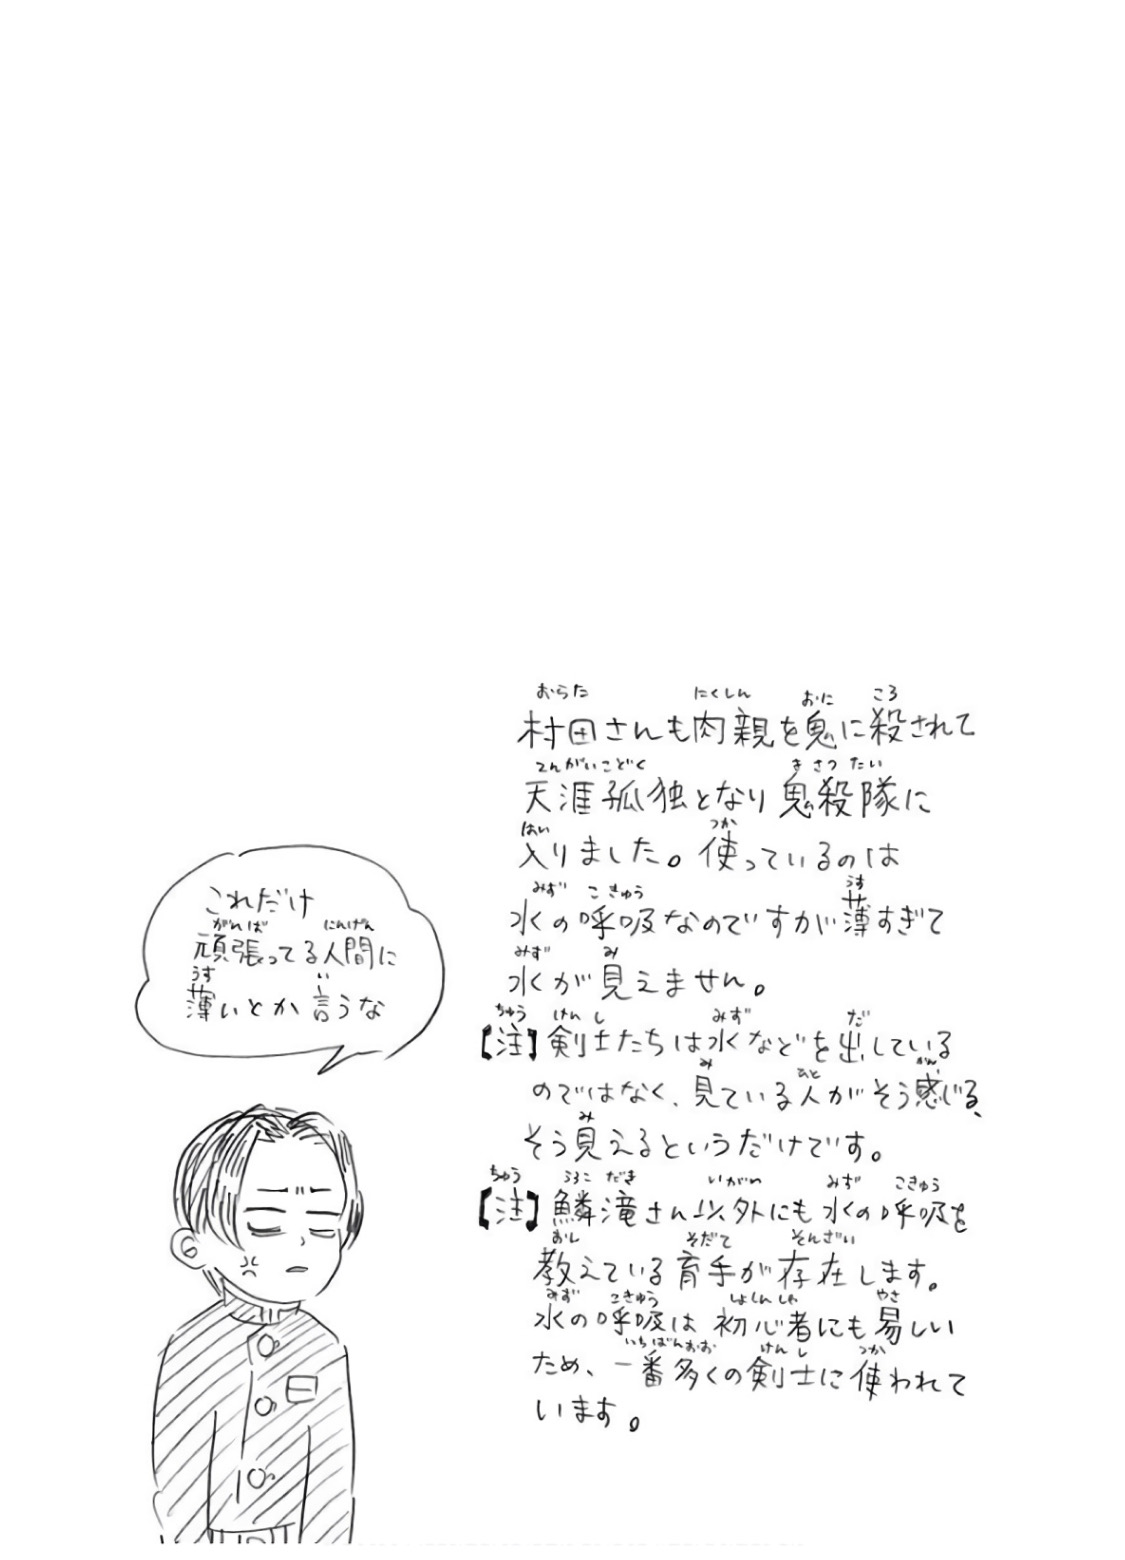 村田さんも肉親を鬼に殺されて
天涯孤独となり鬼殺隊に
入りました。使っているのは
水の呼吸なのですが薄すぎて
水が見えません。
【注】剣士たちは水などを出している
のではなく、見ている人がそう感じる、
そう見えるというだけです。
【注】鱗滝さん以外にも水の呼吸を
教えている育手が存在します。
水の呼吸は初心者にも易しい
ため、一番多くの剣士に使われて
います。
これだけ
頑張ってる人間に
薄いとか言うな